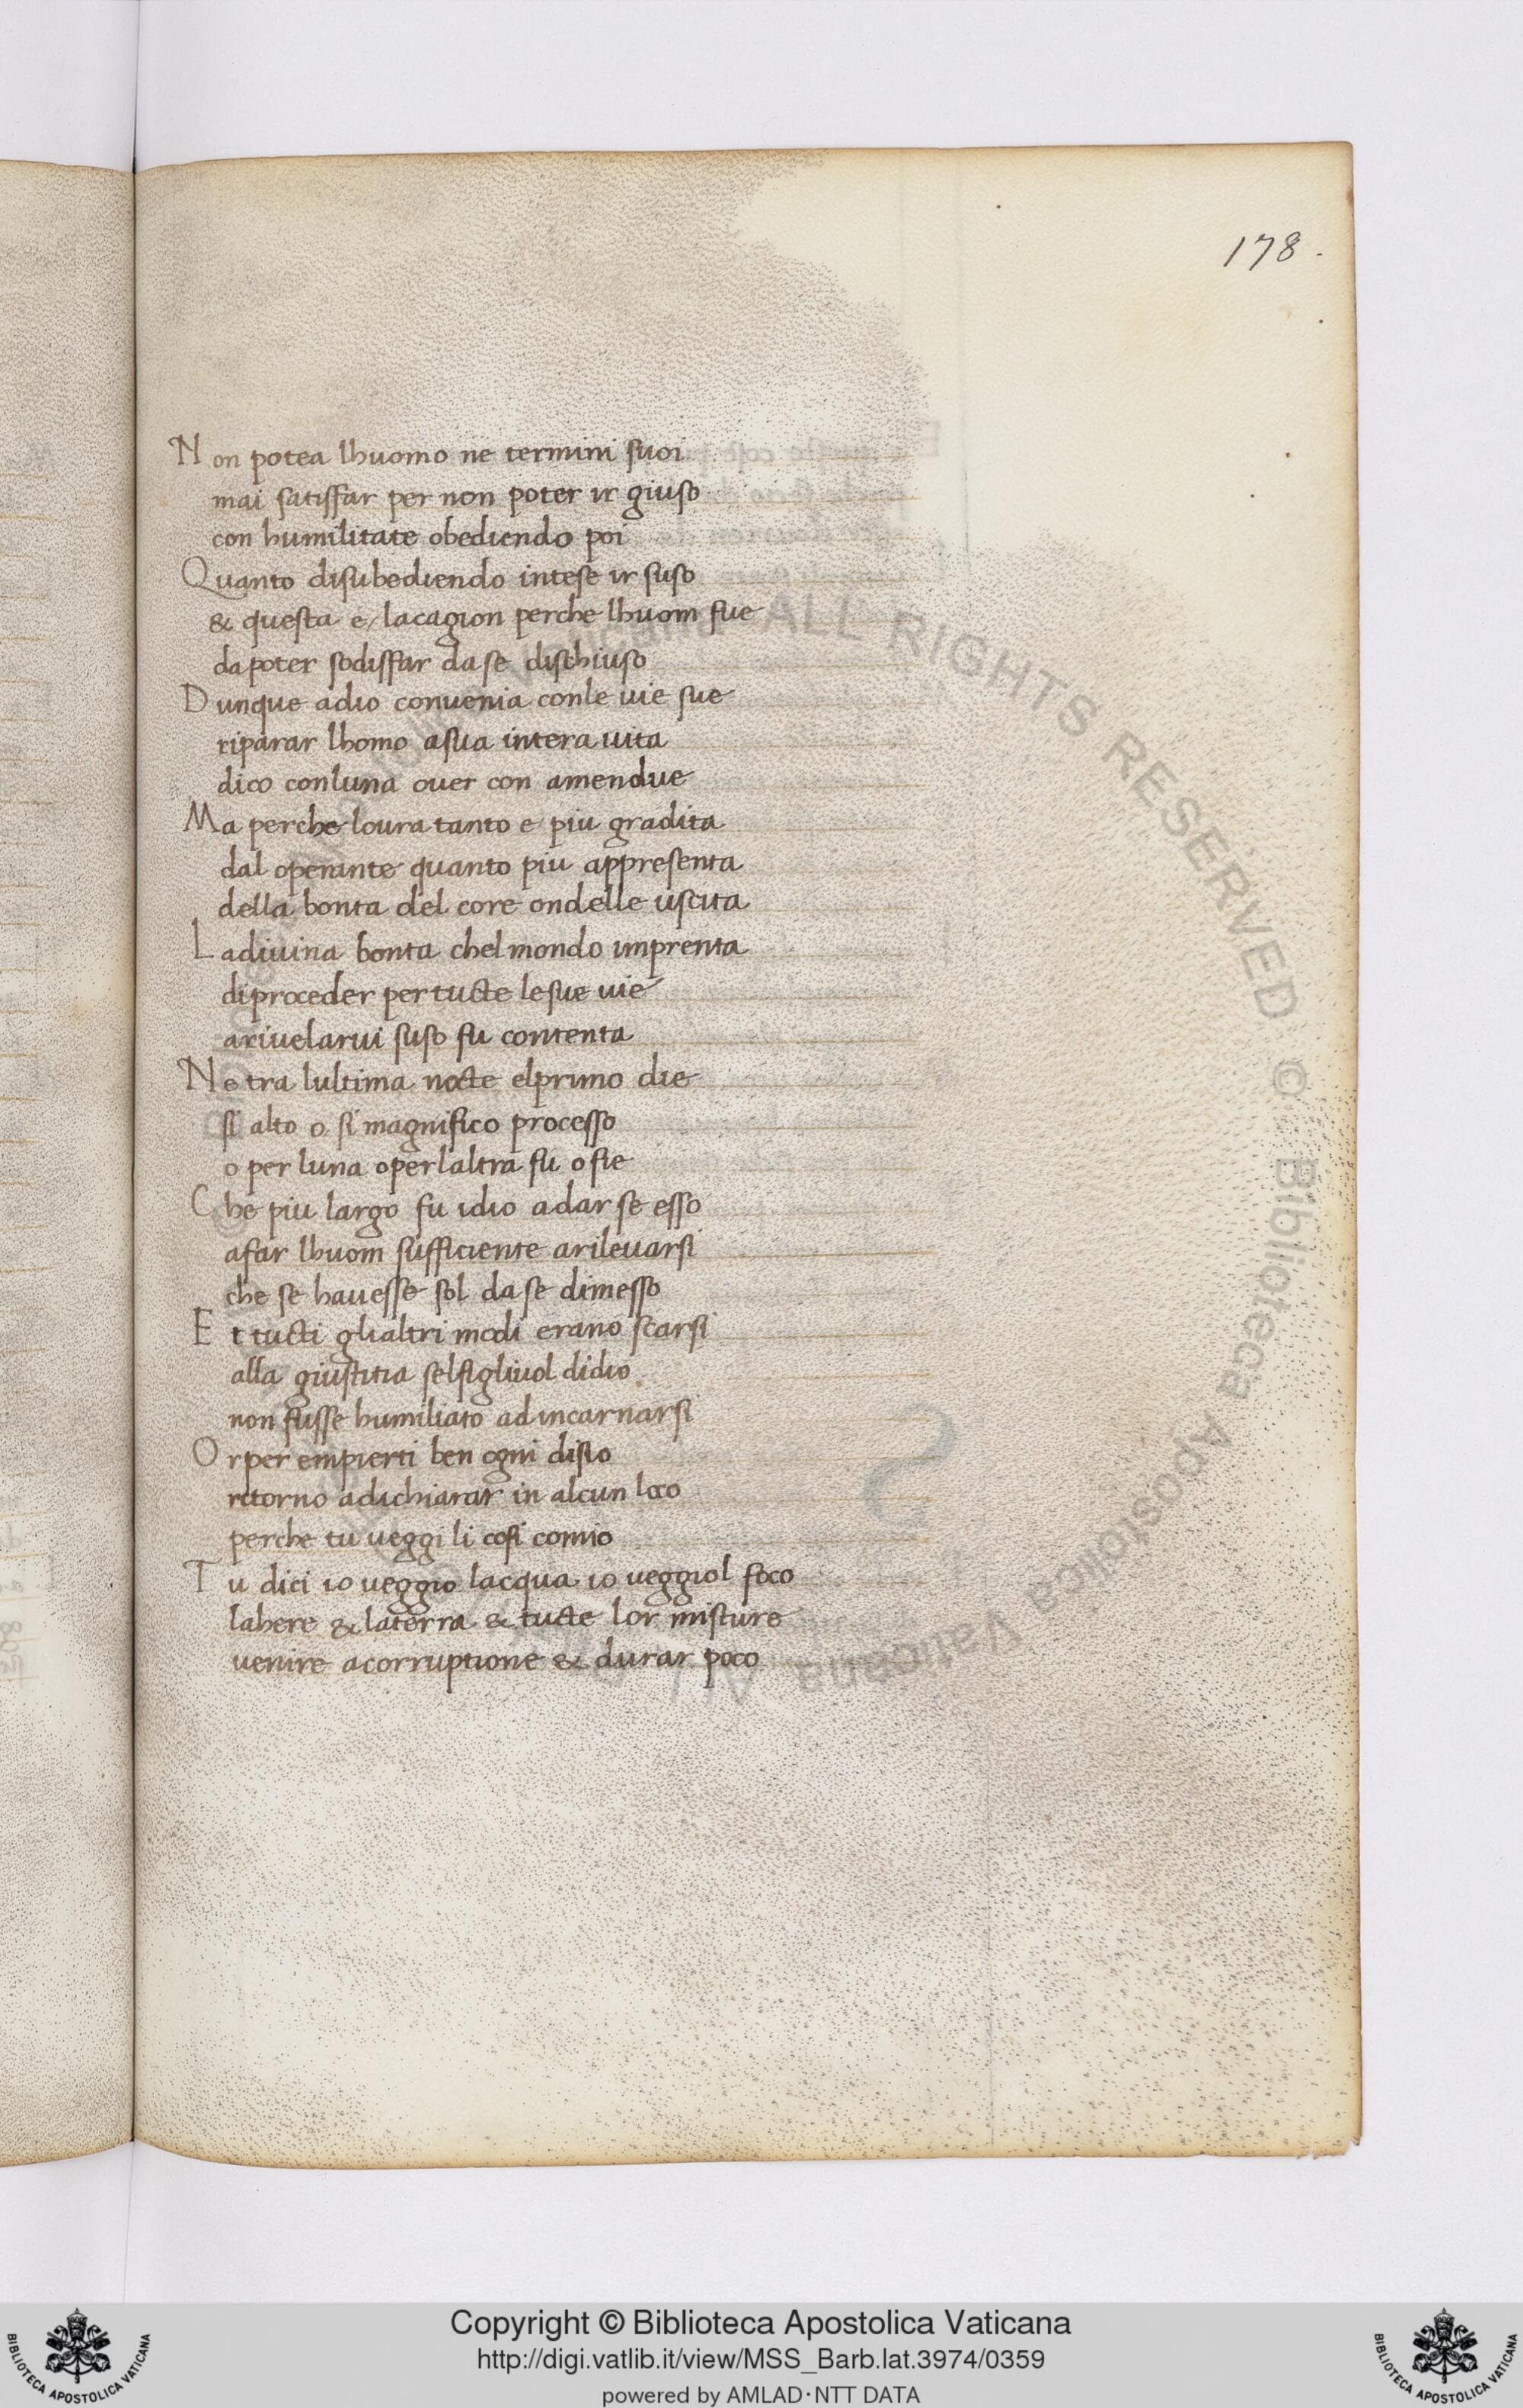 178.
Non potea lhuomo ne termini suoi
mai satisfar per non poter ir giuso
con humilitate obediendo poi
Quanto disubediendo intese ir suso
& questa e lacagion perche lhuom fue
dapoter sodisfar dase dischiuso
Dunque adio convenia conle vie sue
riparar lhomo asua intera vita
dico conluna over con amendue
Ma perche lovra tanto e piu gradita
dal operante quanto piu appresenta
della bonta del core ondelle uscita
Ladivina bonta chel mondo imprenta
diproceder per tucte lesue vie
arivelarvi suso fu contenta
Ne tra lultima nocte elprimo die
si alto o si magnifico processo
o per luna operlaltra fu o fie
Che piu largo fu idio adar se esso
afar lhuom sufficiente arilevarsi
che se havesse sol dase dimesso
Et tucti glialtri modi erano scarsi
alla giustitia selfigliuol didio
non fusse humiliato adincarnarsi
Orper empierti ben ogni disio
ritorno adichiarar in alcun loco
perche tu veggi li cosi comio
Tu dici io veggio lacqua io veggiol foco
lahere & laterra & tucte lor misture
venire acorruptione & durar poco
ALL RIGHTS RESERVED © Biblioteca Apostolica Vaticana
Copyright © Biblioteca Apostolica Vaticana
http://digi.vatlib.it/view/MSS_Barb.lat.3974/0359
powered by AMLAD·NTT DATA
BIBLIOTECA APOSTOLICA VATICANA
BIBLIOTECA APOSTOLICA VATICANA